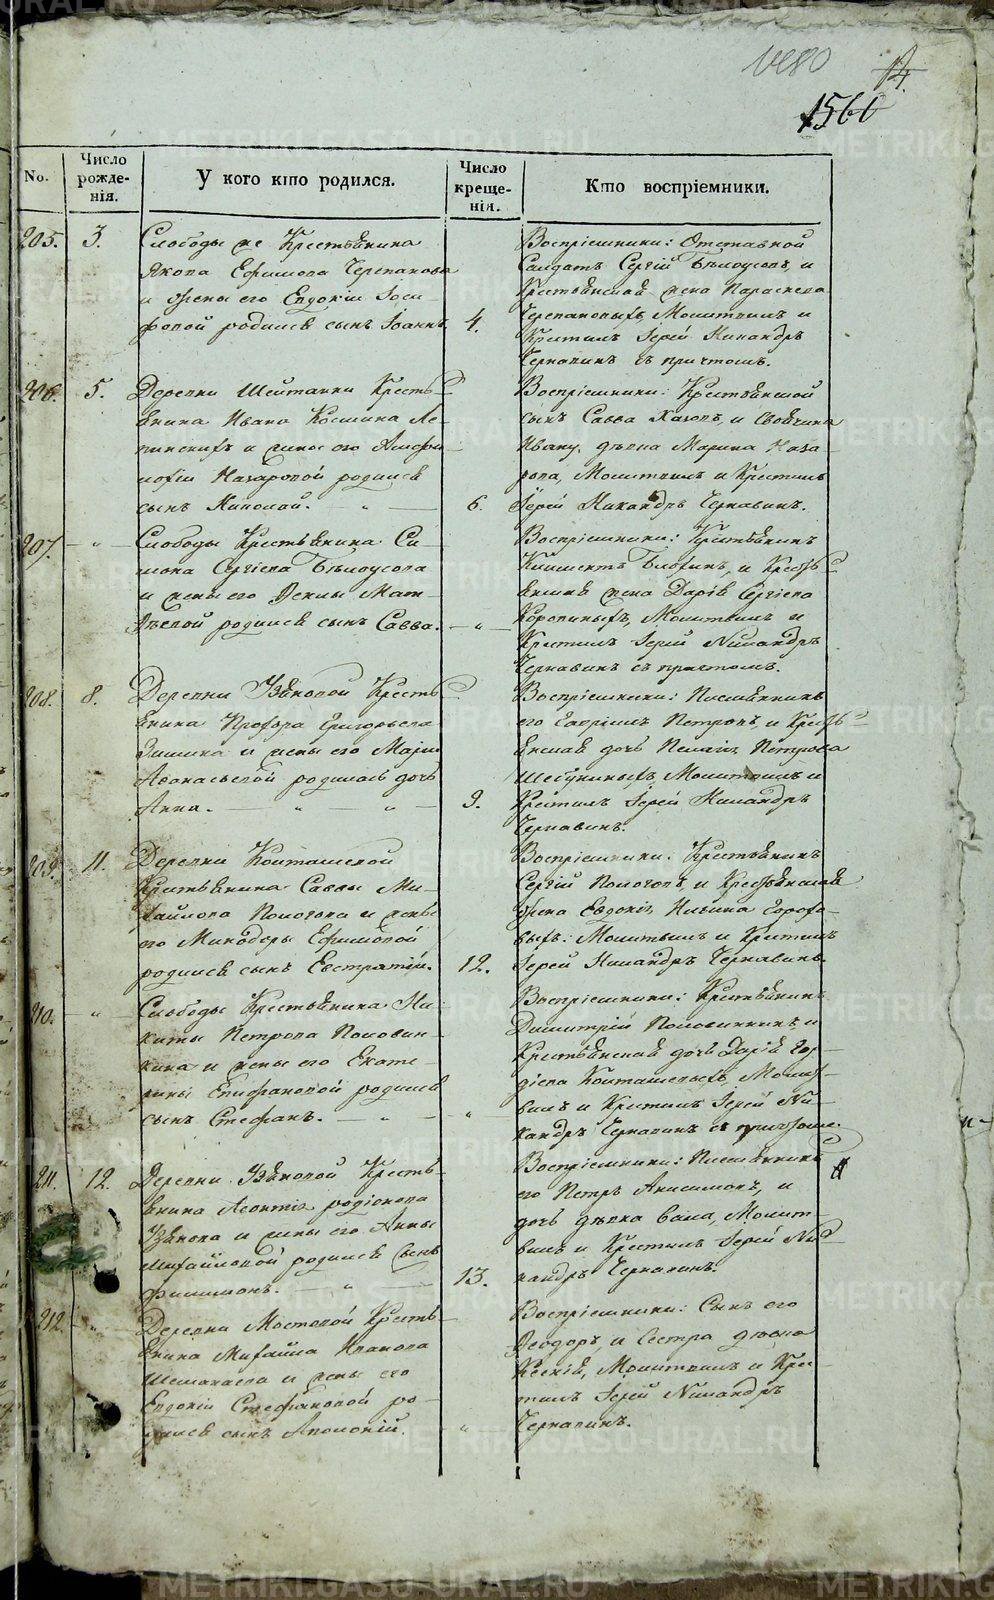 1560
No.
Число рожденія.
У кого кто родился.
Число крещенія.
Кто воспріемники.
205.
3.
Слободы же Крестьянина
Якова Ефимова Черепанова
и жены его Евдокіи Іоси-
фовой родился сынъ Іоаннъ.
4.
Воспріемники: Отставной
Солдатъ Сергій Бѣлоусовъ, и
Крестьянская жена Параскева
Черепановыхъ, Молитвилъ и
Крестилъ Іерей Никандръ
Чернавинъ съ причтомъ.
206.
5.
Деревни Шайтанки Кресть-
янина Ивана Космина Ле-
и жены его
Назаровой родился
сынъ Николай.
6.
Воспріемники: Крестьянской
сынъ Савва и
Ивану, дѣвка Марина Наза-
рова, Молитвилъ и Крестилъ
Іерей Никандръ Чернавинъ.
207.
Слободы Крестьянина Си-
мона Сергіева Бѣлоусова
и жены его Ксеніи Мат-
вѣевой родился сынъ Савва.
Воспріемники: Крестьянинъ
Климентъ и Кресть-
янская жена Дарія Сергіева
Коровиныхъ, Молитвилъ и
Крестилъ Іерей Никандръ
Чернавинъ съ причтомъ.
208.
8.
Деревни Узяновой Кресть-
янина Профора Григорьева
и жены его Маріи
Афанасьевой родилась дочь
Анна.
9.
Воспріемники: Племянникъ
его Гавріилъ Петровъ, и Кресть-
янская дочь Пелагія Петрова
Молитвилъ и
Крестилъ Іерей Никандръ
Чернавинъ.
209.
11.
Деревни Колташевской
Крестьянина Саввы Ми-
хайлова Пологова и жены
его Минодоры Ефимовой
родился сынъ Евстратій.
12.
Воспріемники: Крестьянинъ
Сергій Пологовъ, и Крестьянская
жена Евдокія Ильина
Молитвилъ и Крестилъ
Іерей Никандръ Чернавинъ.
210.
Слободы Крестьянина Ни-
киты Петрова Половин-
кина и жены его Екате-
рины Епифановой родился
сынъ Стефанъ.
Воспріемники: Крестьянинъ
Димитрій Половинкинъ и
Крестьянская дочь Дарія Гор-
діева Колташевыхъ, Молит-
вилъ и Крестилъ Іерей Ни-
кандръ Чернавинъ съ причтомъ.
211.
12.
Деревни Узяновой Кресть-
янина Леонтія родіонова
Узянова и жены его Анны
Михайловой родился Сынъ
Филимонъ.
13.
Воспріемники: Племянникъ
его Петръ Анисимовъ, и
дочь дѣвка Молит-
вилъ и Крестилъ Іерей Ни-
кандръ Чернавинъ.
212.
Деревни Мостовой Кресть-
янина Михайла Иванова
и жены его
Евдокіи Стефановой ро-
дился сынъ Аполоній.
Воспріемники: Сынъ его
Ѳеодоръ, и Сестра дѣвка
Ксенія, Молитвилъ и Кре-
стилъ Іерей Никандръ
Чернавинъ.
METRIKI.GASO-URAL.RU